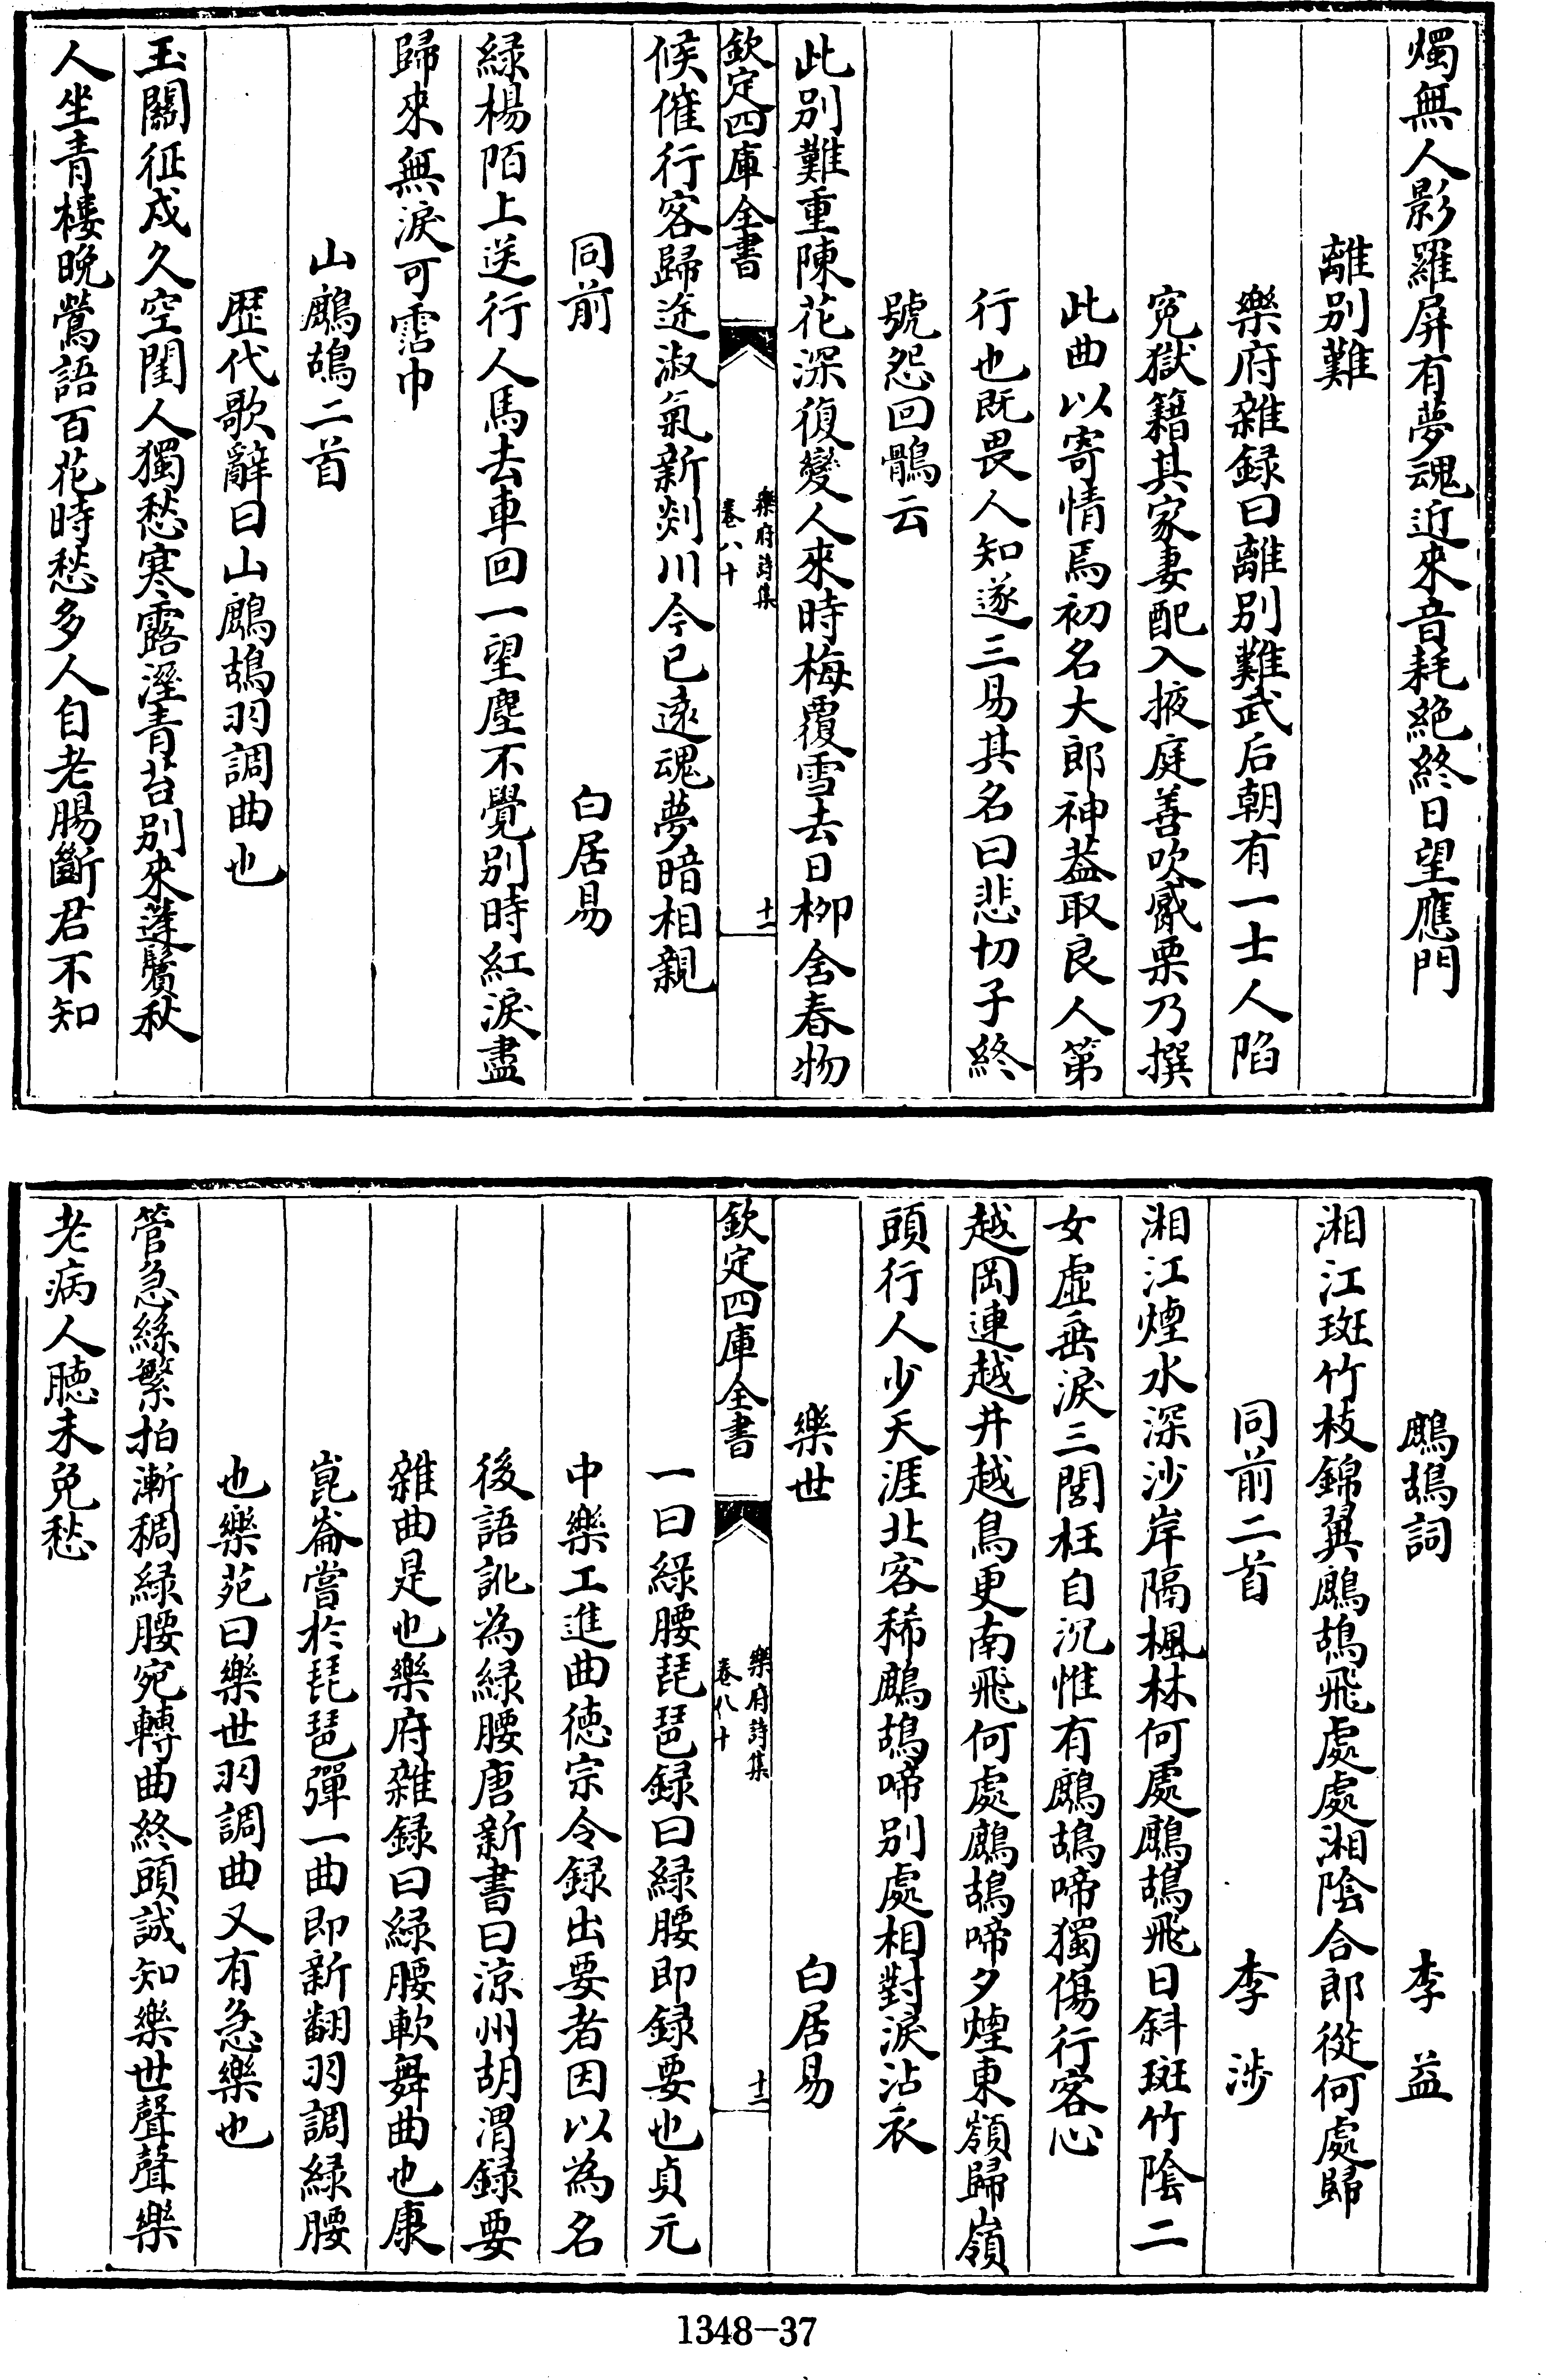 燭無人影羅屏有夢魂近來音耗絶終日望應門
離別難
樂府雜録曰離別難武后朝有一士人陷
寃獄籍其家妻配入掖庭善吹觱栗乃撰
此曲以寄情焉初名大郎神葢取良人第
行也既畏人知遂三易其名曰悲切子終
號怨回鶻云
此别難重陳花深復變人來時梅覆雪去日栁含春物
欽定四庫全書
樂府詩集
卷八十
十一
候催行客歸途淑氣新剡川今已遠魂夢暗相親
同前
白居易
緑楊陌上送行人馬去車回一望塵不覺别時紅淚盡
歸來無淚可霑巾
山鷓鴣二首
歴代歌辭曰山鷓鴣羽調曲也
玉關征戍久空閨人獨愁寒露溼青苔别來蓬鬢秋
人坐青樓晩鶯語百花時愁多人自老腸斷君不知
鷓鴣詞
李益
湘江斑竹枝錦翼鷓鴣飛處處湘隂合郎從何處歸
同前二首
李涉
湘江煙水深沙岸隔楓林何處鷓鴣飛日斜斑竹隂二
女虚垂淚三閭枉自沉惟有鷓鴣啼獨傷行客心
越岡連越井越鳥更南飛何處鷓鴣啼夕煙東嶺歸嶺
頭行人少天涯北客稀鷓鴣啼别處相對淚沾衣
樂世
白居易
欽定四庫全書
樂府詩集
卷八十
十二
一曰緑腰琵琶録曰緑腰即録要也貞元
中樂工進曲徳宗令録出要者因以為名
後語訛為緑腰唐新書曰涼州胡渭録要
雜曲是也樂府雜録曰緑腰軟舞曲也康
崑崙嘗於琵琶彈一曲即新翻羽調緑腰
也樂苑曰樂世羽調曲又有急樂也
管急絲繁拍漸稠緑腰宛轉曲終頭誠知樂世聲聲樂
老病人聽未免愁
1348-37